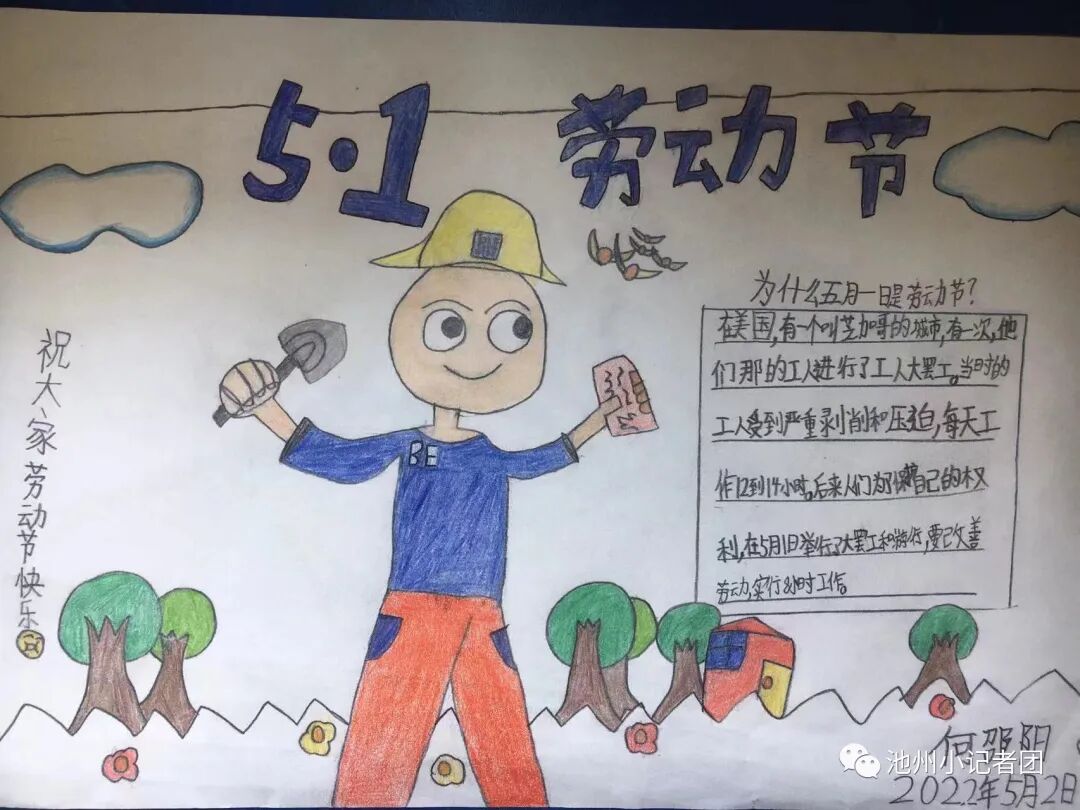 5·1 劳动节
祝大家劳动节快乐
BE
为什么五月一日是劳动节?
在美国,有一个叫芝加哥的城市,有一次,他
们那的工人进行了工人大罢工。当时的
工人受到严重剥削和压迫,每天工
作12到14小时。后来人们为了保障自己的权
利,在5月1日举行了大罢工和游行,要己改善
劳动,实行8小时工作。
何邵阳
2022年5月2日
池州小记者团